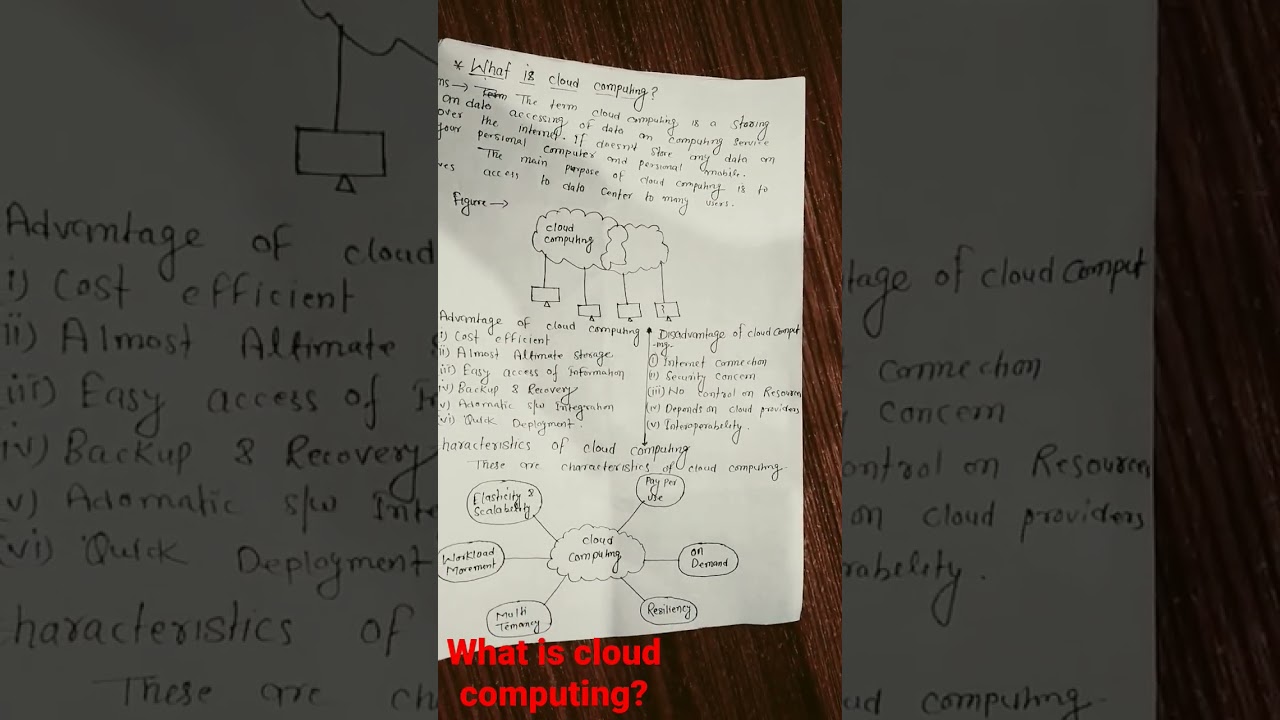 * What is cloud computing?
ns → The term cloud computing is a storing
on data accessing of data on computing service
over the internet. If doesn't store any data on
your persional computer and persional mobile.
The main purpose of cloud computing is to
ves access to data center to many users.
Figure →
cloud
computing
Advantage of cloud computing
i) Cost efficient
ii) Almost Altimate storage
iii) Easy access of Information
iv) Backup & Recovery
v) Automatic s/w Integration
vi) Quick Deployment.
Disadvantage of cloud comput
-ing-
(i) Internet connection
(ii) Security concern
(iii) No control on Resources
(iv) Depends on cloud providers
(v) Interoperability.
haracteristics of cloud computing
These are characteristics of cloud computing.
Elasticity &
Scalability
Pay Per
use
Workload
Movement
cloud
computing
on
Demand
Multi
Temancy
Resiliency
What is cloud
computing?
Advantage of cloud
i) Cost efficient
ii) Almost Altimate s
iii) Easy access of In
iv) Backup & Recovery
v) Automatic s/w Inte
(vi) Quick Deployment
haracteristics of
These are ch
tage of cloud comput
connection
concern
ontrol on Resources
on cloud providers
rability.
oud computing.